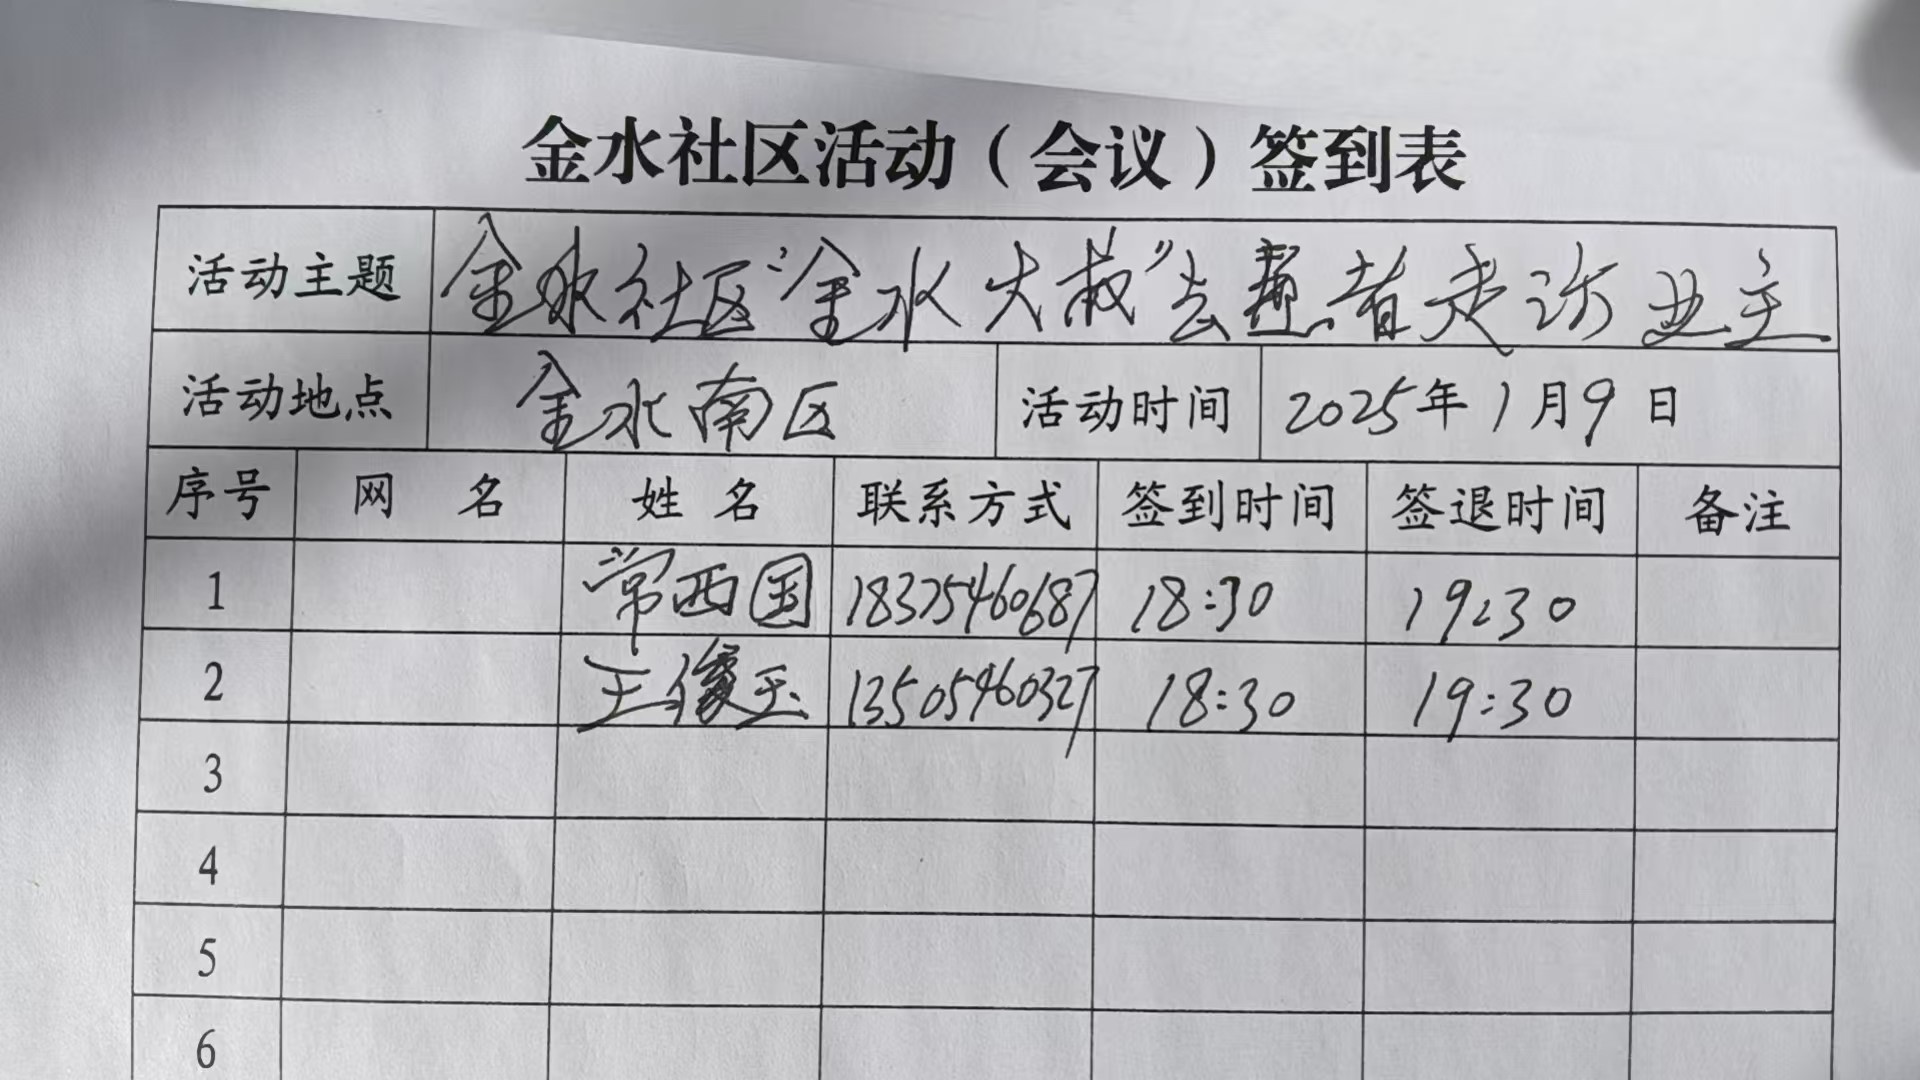 金水社区活动（会议）签到表
活动主题 金水社区"金水大叔"志愿者走访业主
活动地点 金水南区 活动时间 2025年1月9日
序号 网 名 姓 名 联系方式 签到时间 签退时间 备注
1 常西国 18375460687 18:30 19:30
2 王俊玉 13505460327 18:30 19:30
3
4
5
6